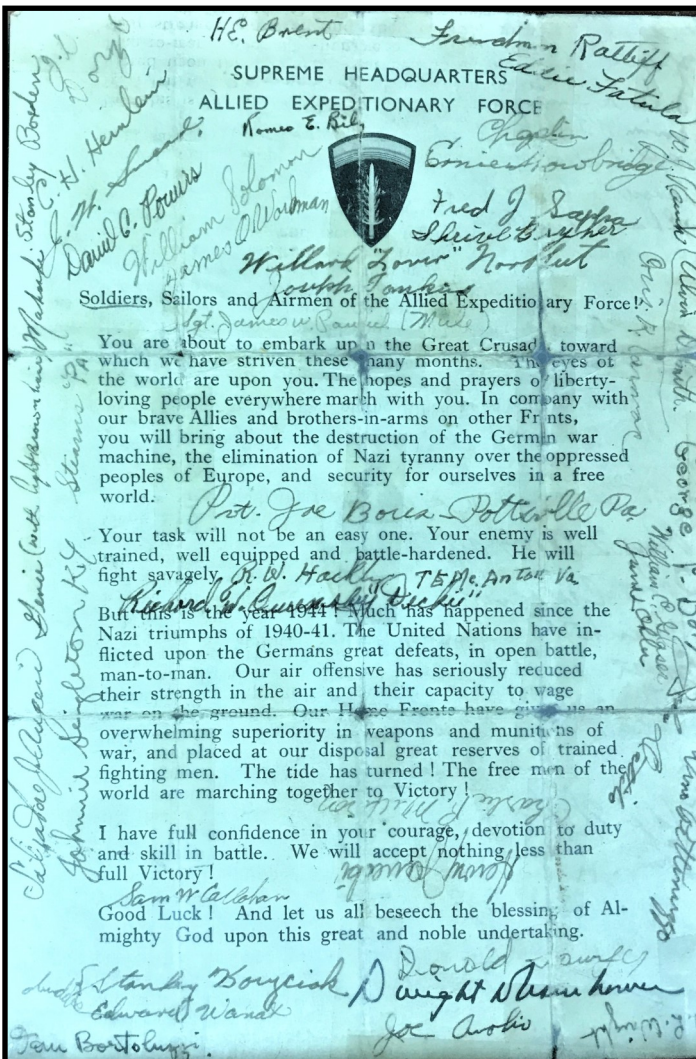 H.E. Brent
Freedman Ratliff
Eddie Fatula
SUPREME HEADQUARTERS
ALLIED EXPEDITIONARY FORCE
Romeo E. Bily
Chaplin
J. H. Hernlem
Daniel C. Powers
William Solomon
James O. Workman
Fred J. Sappa
Willard "Lover" Norfleet
Joseph
Soldiers, Sailors and Airmen of the Allied Expeditionary Force!
Sgt. James W. (Mule)
You are about to embark upon the Great Crusade, toward
which we have striven these many months. The eyes of
the world are upon you. The hopes and prayers of liberty-
loving people everywhere march with you. In company with
our brave Allies and brothers-in-arms on other Fronts,
you will bring about the destruction of the German war
machine, the elimination of Nazi tyranny over the oppressed
peoples of Europe, and security for ourselves in a free
world.
Pvt. Joe Boris - Pottsville Pa
Your task will not be an easy one. Your enemy is well
trained, well equipped and battle-hardened. He will
fight savagely.
R. W. Hackley Va
Richard W.
But this is the year 1944! Much has happened since the
Nazi triumphs of 1940-41. The United Nations have in-
flicted upon the Germans great defeats, in open battle,
man-to-man. Our air offensive has seriously reduced
their strength in the air and their capacity to wage
war on the ground. Our Home Fronts have given us an
overwhelming superiority in weapons and munitions of
war, and placed at our disposal great reserves of trained
fighting men. The tide has turned! The free men of the
world are marching together to Victory!
Charles R.
I have full confidence in your courage, devotion to duty
and skill in battle. We will accept nothing less than
full Victory!
Sam W Callahan
Good Luck! And let us all beseech the blessing of Al-
mighty God upon this great and noble undertaking.
Donald
Stanley Boryciak
Dwight D Eisenhower
Edward Wanat
Joe Avolio
Tom Bortoluzzi
Stanley Borden
Johnnie Singleton KY
Stearns
Alvin D. Smith
George P.
William C.